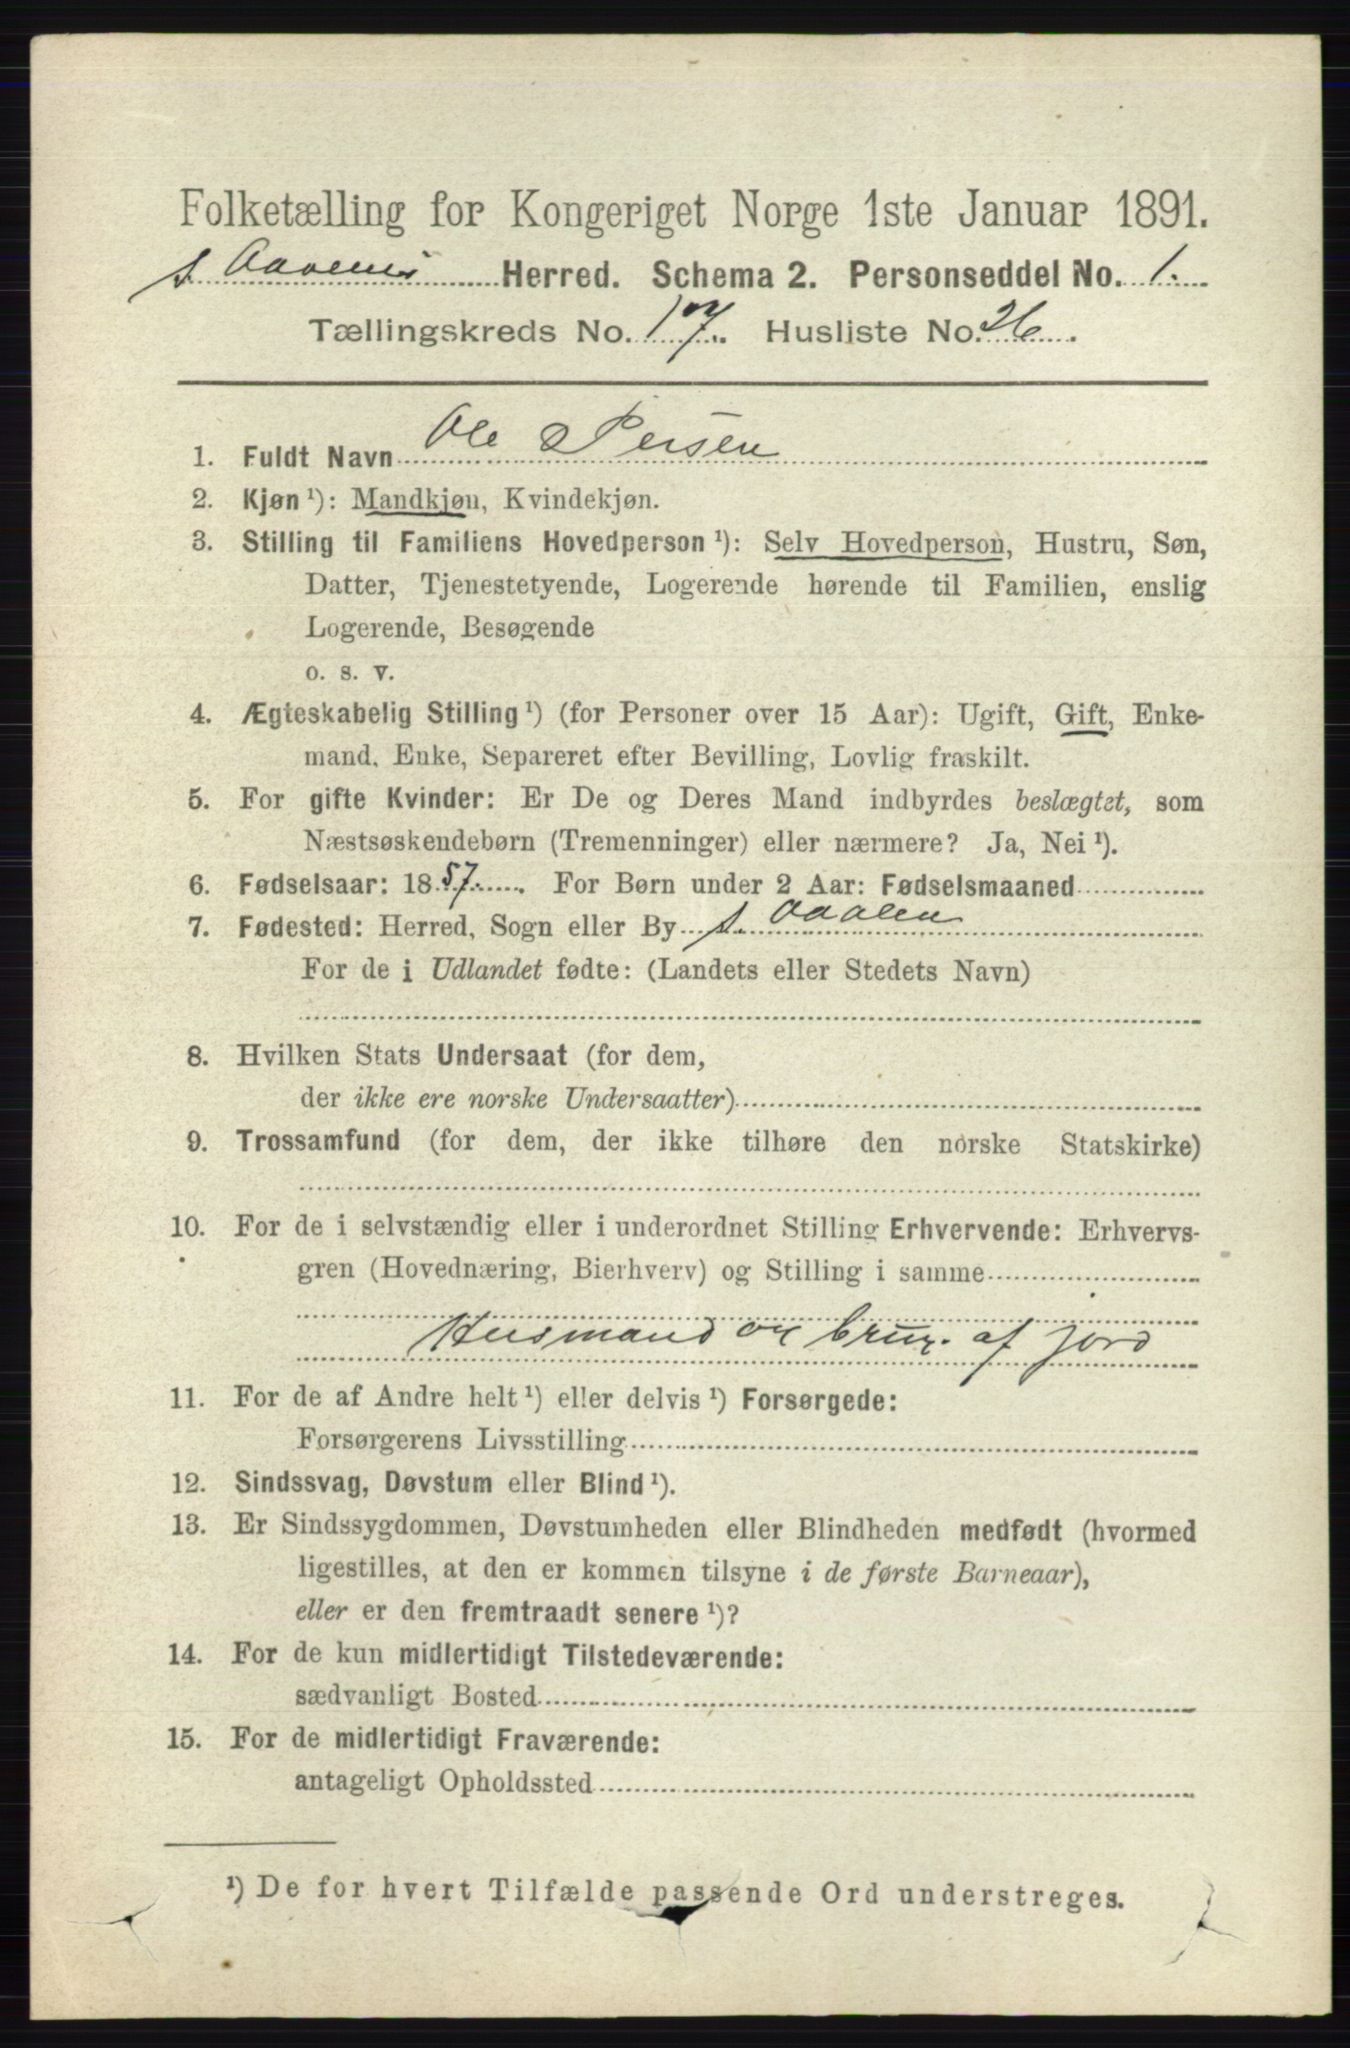 Folketælling for Kongeriget Norge 1ste Januar 1891.
S. Aavens Herred. Schema 2. Personseddel No. 1.
Tællingskreds No. 17. Husliste No. 26.
1. Fuldt Navn Ole Persen
2. Kjøn ¹): Mandkjøn, Kvindekjøn.
3. Stilling til Familiens Hovedperson ¹): Selv Hovedperson, Hustru, Søn,
Datter, Tjenestetyende, Logerende hørende til Familien, enslig
Logerende, Besøgende
o. s. v.
4. Ægteskabelig Stilling ¹) (for Personer over 15 Aar): Ugift, Gift, Enke-
mand, Enke, Separeret efter Bevilling, Lovlig fraskilt.
5. For gifte Kvinder: Er De og Deres Mand indbyrdes beslægtet, som
Næstsøskendebørn (Tremenninger) eller nærmere? Ja, Nei ¹).
6. Fødselsaar: 1857. For Børn under 2 Aar: Fødselsmaaned
7. Fødested: Herred, Sogn eller By S. Aadalen
For de i Udlandet fødte: (Landets eller Stedets Navn)
8. Hvilken Stats Undersaat (for dem,
der ikke ere norske Undersaatter)
9. Trossamfund (for dem, der ikke tilhøre den norske Statskirke)
10. For de i selvstændig eller i underordnet Stilling Erhvervende: Erhvervs-
gren (Hovednæring, Bierhverv) og Stilling i samme
Husmand og brug. af jord
11. For de af Andre helt ¹) eller delvis ¹) Forsørgede:
Forsørgerens Livsstilling
12. Sindssvag, Døvstum eller Blind ¹).
13. Er Sindssygdommen, Døvstumheden eller Blindheden medfødt (hvormed
ligestilles, at den er kommen tilsyne i de første Barneaar),
eller er den fremtraadt senere ¹)?
14. For de kun midlertidigt Tilstedeværende:
sædvanligt Bosted
15. For de midlertidigt Fraværende:
antageligt Opholdssted
¹) De for hvert Tilfælde passende Ord understreges.